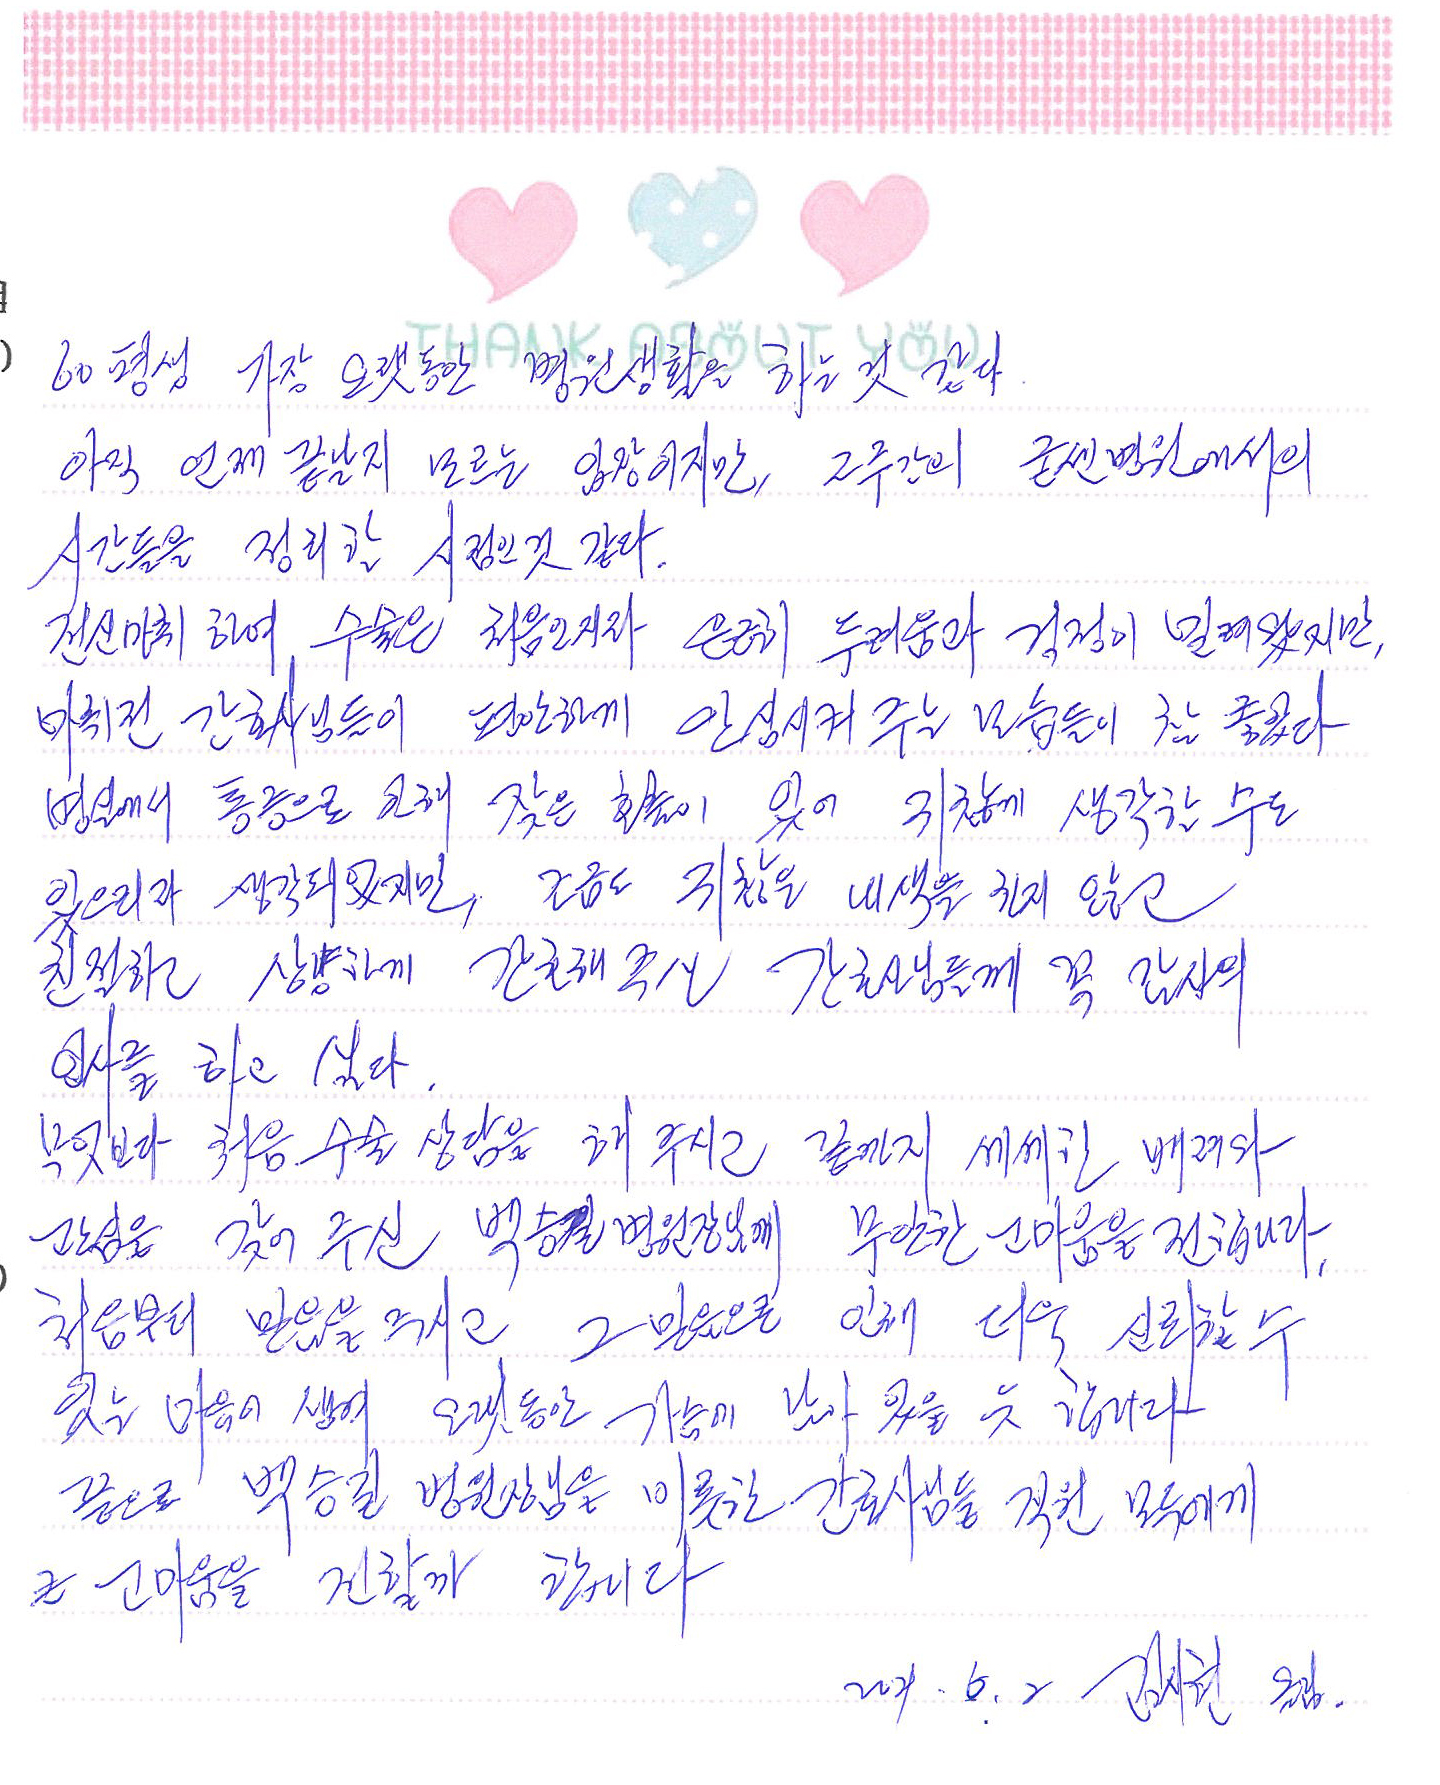 THANK ABOUT YOU
60 평생 가장 오랫동안 병원생활을 하는 것 같다.
아직 언제 끝날지 모르는 입장이지만, 2주간의 굳센병원에서의
시간들을 정리할 시점인것 같다.
전신마취 하여 수술은 처음인지라 은근히 두려움과 걱정이 밀려왔지만,
마취전 간호사님들이 편안하게 안심시켜 주는 모습들이 참 좋았다
병실에서 통증으로 인해 잦은 호출이 있어 귀찮게 생각할 수도
있으리라 생각되었지만, 조금도 귀찮은 내색을 하지 않고
친절하고 상냥하게 간호해 주신 간호사님들께 꼭 감사의
인사를 하고 싶다.
무엇보다 처음 수술 상담을 해 주시고 끝까지 세세한 배려와
관심을 갖어 주신 백승길 병원장님께 무한한 고마움을 전합니다.
처음부터 믿음을 주시고 그 믿음으로 인해 더욱 신뢰할 수
있는 마음이 생겨 오랫동안 가슴에 남아 있을 듯 합니다
끝으로 백승길 병원장님을 비롯한 간호사님들 직원 모두에게
큰 고마움을 전할까 합니다
6. 2 올림.